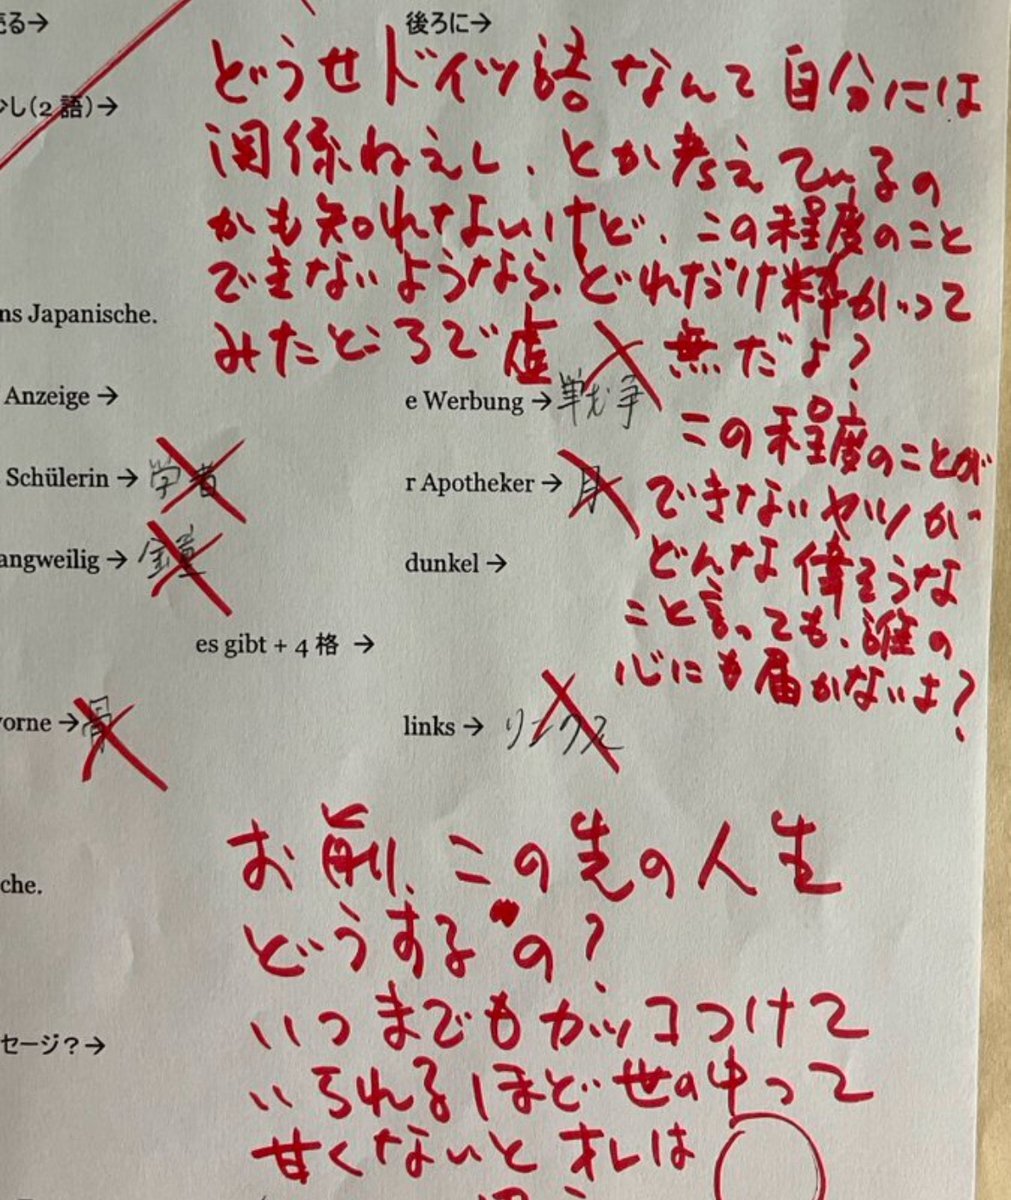 売る→
後ろに→
どうせドイツ語なんて自分には
少し(2 語)→
関係ねえし、とか考えているの
かも知れないけど、この程度のこと
できないようなら、どれだけ粋がって
ns Japanische.
みたところで虚無だよ?
Anzeige →
e Werbung → 戦む争
この程度のことが
Schülerin → 学者
r Apotheker → 月
できないヤツが
angweilig → 金童
dunkel →
どんな偉そうな
こと言っても、誰の
es gibt + 4 格 →
心にも届かないよ?
vorne → 骨
links → リンクス
お前、この先の人生
che.
どうするの?
いつまでもカッコつけて
セージ?→
いられるほど世の中って
甘くないとオレは